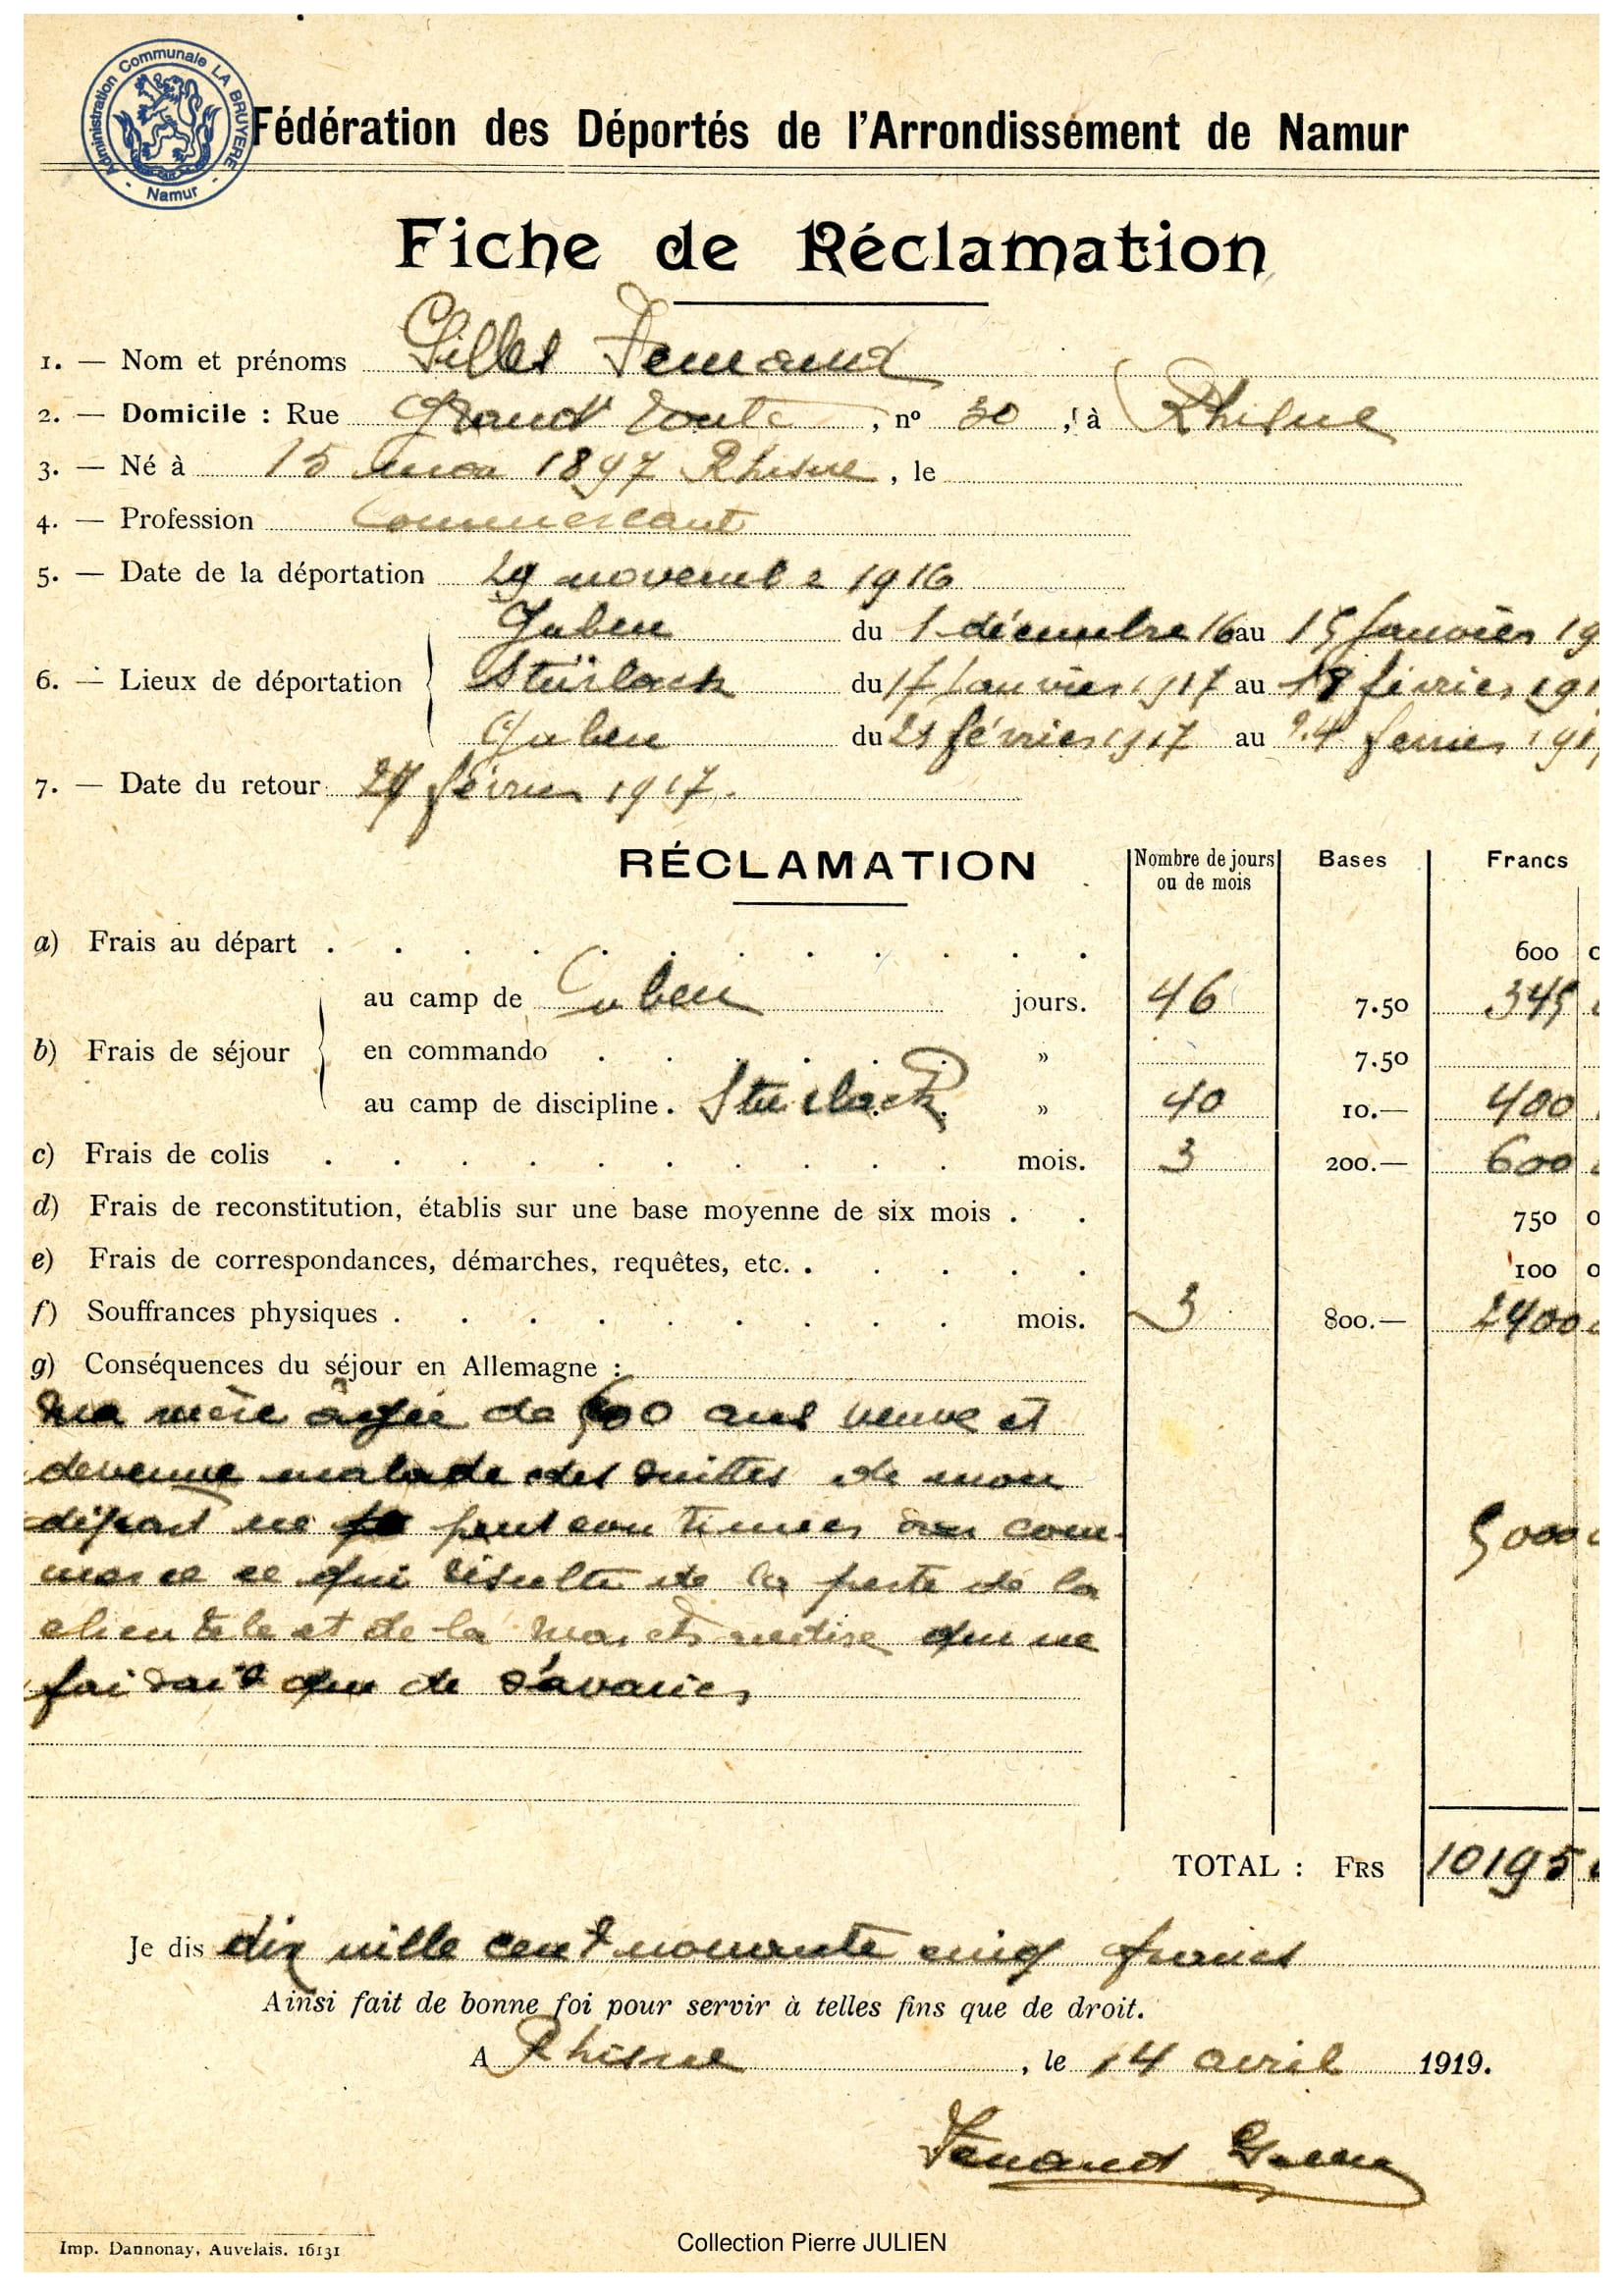 Administration Communale LA BRUYERE - Namur -
Fédération des Déportés de l'Arrondissement de Namur
Fiche de Réclamation
1. — Nom et prénoms Gilles Fernand
2. — Domicile : Rue Grand route , n° 30 , à Rhisne
3. — Né à 15 mai 1897 Rhisne , le
4. — Profession Commercant
5. — Date de la déportation 29 novembre 1916
Guben du 1 décembre 16 au 15 Janvier 19
6. — Lieux de déportation du 17 Janvier 1917 au 18 février 191
Guben du 21 février 1917 au 24 fevrier 191
7. — Date du retour février 1917.
RÉCLAMATION Nombre de jours ou de mois Bases Francs
a) Frais au départ 600
au camp de Guben jours. 46 7.50 345
b) Frais de séjour en commando » 7.50
au camp de discipline. » 40 10.— 400
c) Frais de colis mois. 3 200.— 600
d) Frais de reconstitution, établis sur une base moyenne de six mois 750
e) Frais de correspondances, démarches, requêtes, etc. 100
f) Souffrances physiques mois. 3 800.— 2400
g) Conséquences du séjour en Allemagne :
ma mère âgée de ans veuve et
devenue malade des suittes de mon
départ ne peut continuer son com-
merce ce qui résulte de la perte de la
clientele et de la marchandise qui ne
faisait que de s'avarier
5000
TOTAL : FRS 10195
Je dis dix mille cent nonante cinq francs
Ainsi fait de bonne foi pour servir à telles fins que de droit.
A Rhisne , le 14 avril 1919.
Fernand Gilles
Imp. Dannonay, Auvelais. 16131
Collection Pierre JULIEN